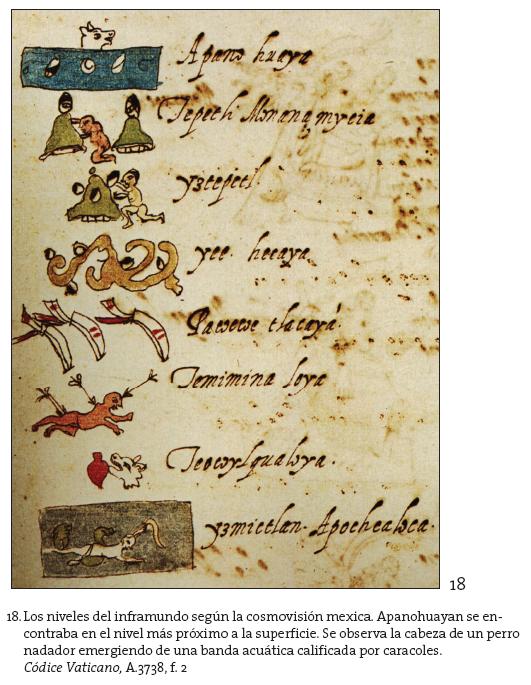 Apano huaya
Tepetli Monanamycia
yztepetl.
yee. hecaya
Pacoecoe tlacaya.
Temimina loya
Teocoylqualoya.
yzmictlan. Apochcaloca.
18
18. Los niveles del inframundo según la cosmovisión mexica. Apanohuayan se en-
contraba en el nivel más próximo a la superficie. Se observa la cabeza de un perro
nadador emergiendo de una banda acuática calificada por caracoles.
Códice Vaticano, A.3738, f. 2